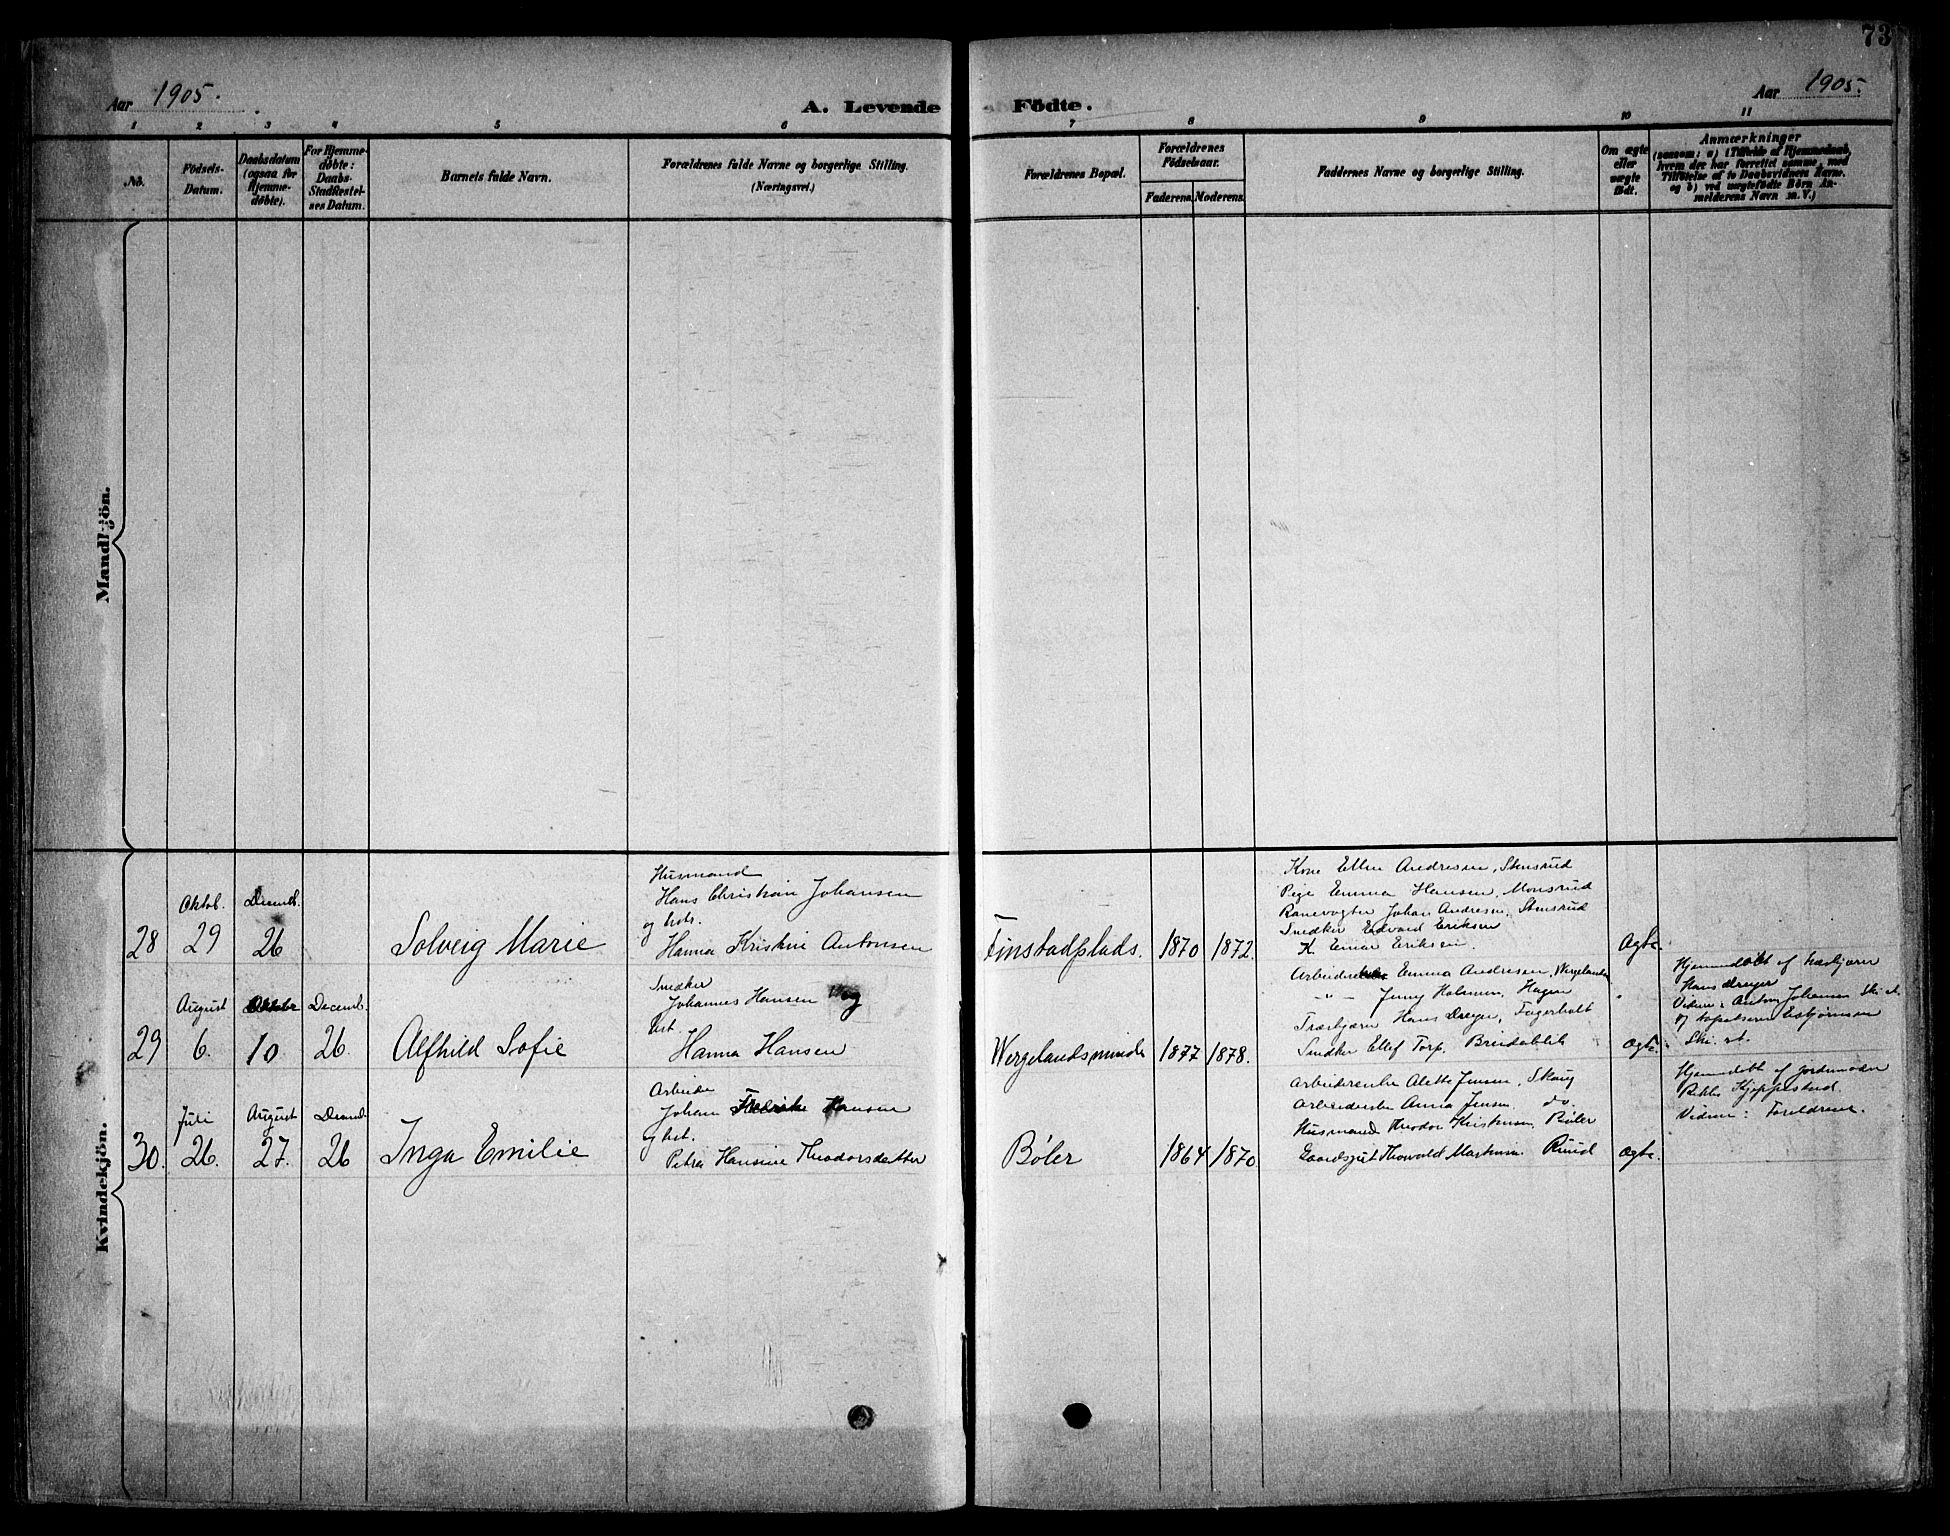 73
Aar 1905.
A. Levende Födte.
Aar 1905.
1 2 3 4 5 6 7 8 9 10 11
No.
Födsels-
Datum.
Daabsdatum
(ogsaa for
Hjemme-
døbte).
For Hjemme-
døbte:
Daabs-
Stadfæstel-
ses Datum.
Barnets fulde Navn.
Forældrenes fulde Navne og borgerlige Stilling.
(Næringsvei.)
Forældrenes Bopæl.
Forældrenes
Födselsaar.
Faderens.
Moderens.
Faddernes Navne og borgerlige Stilling.
Om ægte
eller
uægte
födt.
Anmærkninger
(saasom: a) i Tilfælde af Hjemmedaab,
hvem der har forrettet samme, med
Tilföielse af to Daabsvidners Navne,
og b) ved uægtefödte Börn An-
melderens Navn m. V.)
Mandkjön.
Kvindekjön.
28
Oktob.
29
Decemb.
26
Solveig Marie
Husmand
Hans Christian Johansen
og hst.
Hanna Kristine Antonsen
Finstadplads.
1870
1872.
Kone Ellen Andresen, Stensrud
Pige Emma Hansen, Monsrud
Banevogter Johan Andresen, Stensrud
Snedker Edvard Eriksen
K. Einar Eriksen.
Ægte
29
August
6.
Oktobr
10
Decemb.
26.
Alfhild Sofie
Snedker
Johannes Hansen og
hst.
Hanna Hansen
Wergelandsminde
1877
1878.
Arbeider Emma Andresen, Wergelands
-"- Jenny Holmen, Hagen
Træskjærer Hans Dreyer, Fagerholt
Snedker Ellef Torp, Breidablik
Ægte.
Hjemmedøbt af
Hans Dreyer
Vidner: Johansen Ski st.
og Esbjørnsen
Ski. st.
30.
Juli
26.
August
27.
Decemb.
26
Inga Emilie
Arbeider
Johan Fredrik Hansen
og hst.
Petra Hansine Theodorsdatter
Bøler
1864
1870
Arbeiderenke Alette Jensen, Skaug
Arbeiderske Anna Jensen do.
Husmand Theodor Kristensen, Bøler
Gaardsgut Thorvald Martinsen Ruud
Ægte.
Hjemmedøbt af jordemoder
Kjeppestad.
Vidner: Foreldrene.